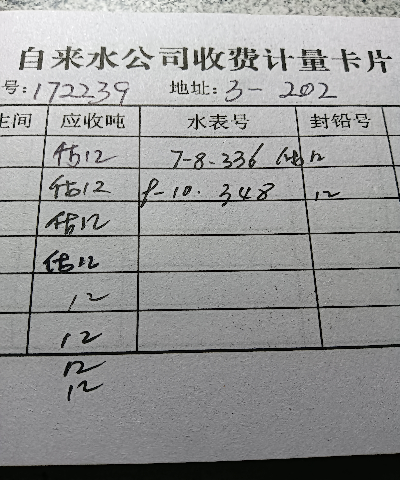 自来水公司收费计量卡片
号:172239 地址:3-202
生间 应收吨 水表号 封铅号
估12 7-8-336 估12
估12 8-10. 348 12
估12
估12
12
12
12
12